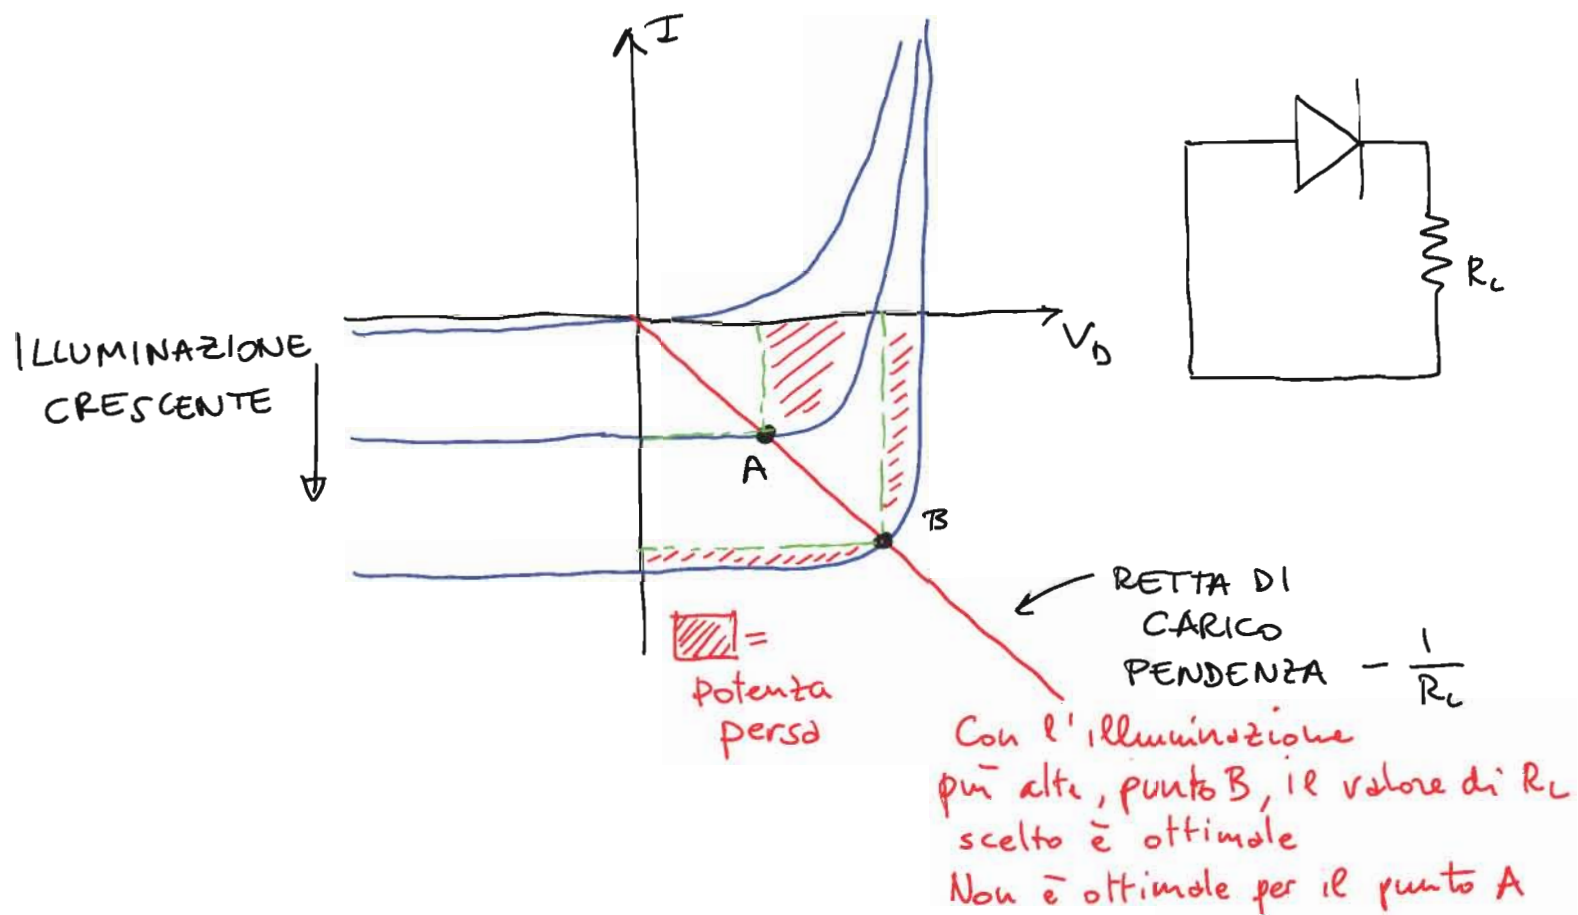 I
V_D
R_L
ILLUMINAZIONE
CRESCENTE
A
B
RETTA DI
CARICO
PENDENZA - 1/R_L
=
potenza
persa
Con l'illuminazione
più alta, punto B, il valore di R_L
scelto è ottimale
Non è ottimale per il punto A